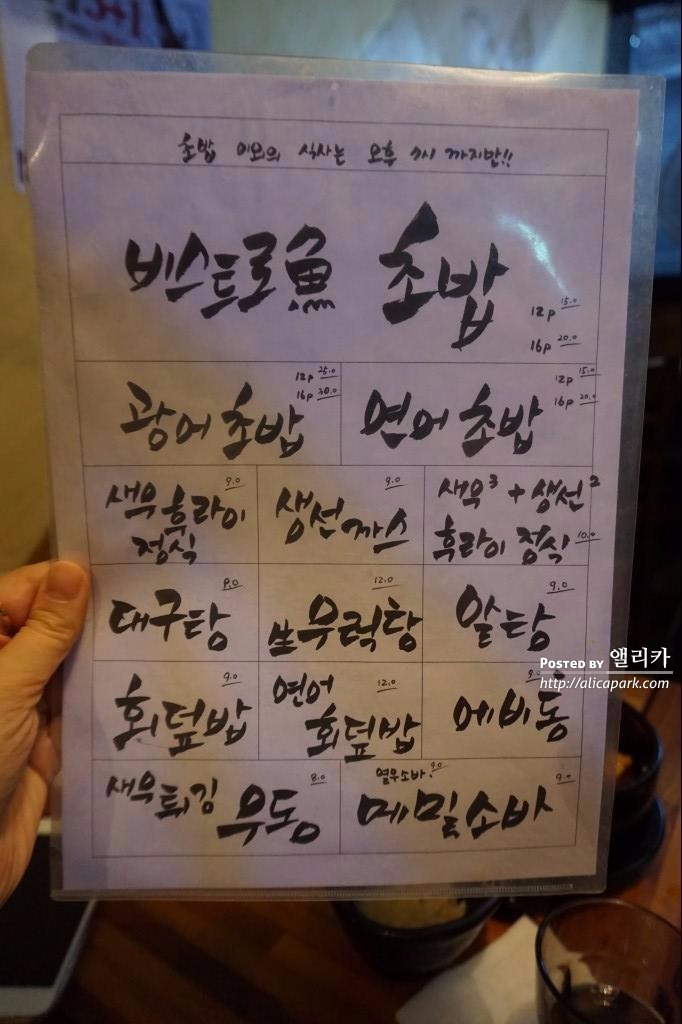 초밥 이외의 식사는 오후 4시 까지만!!
비스트로魚 초밥
12p 15.0
16p 20.0
광어초밥
12p 25.0
16p 30.0
연어초밥
12p 15.0
16p 20.0
새우후라이
정식
9.0
생선까스
9.0
새우3 + 생선2
후라이 정식 10.0
대구탕
9.0
生우럭탕
12.0
알탕
9.0
회덮밥
9.0
연어
회덮밥
12.0
에비동
새우튀김 우동
8.0
열무소바 9.0
메밀소바
9.0
POSTED BY 앨리카
http://alicapark.com